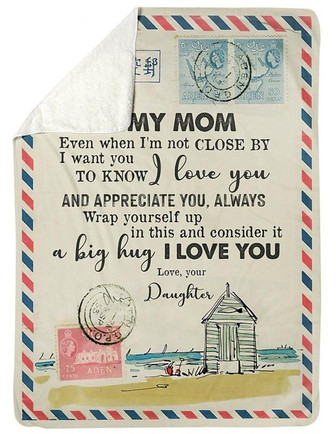 MY MOM
Even when I'm not CLOSE BY
I want you
TO KNOW I love you
AND APPRECIATE YOU, ALWAYS
Wrap yourself up
in this and consider it
a big hug I LOVE YOU
Love, your
Daughter
ADEN
ADEN
75
CENTS
ADEN